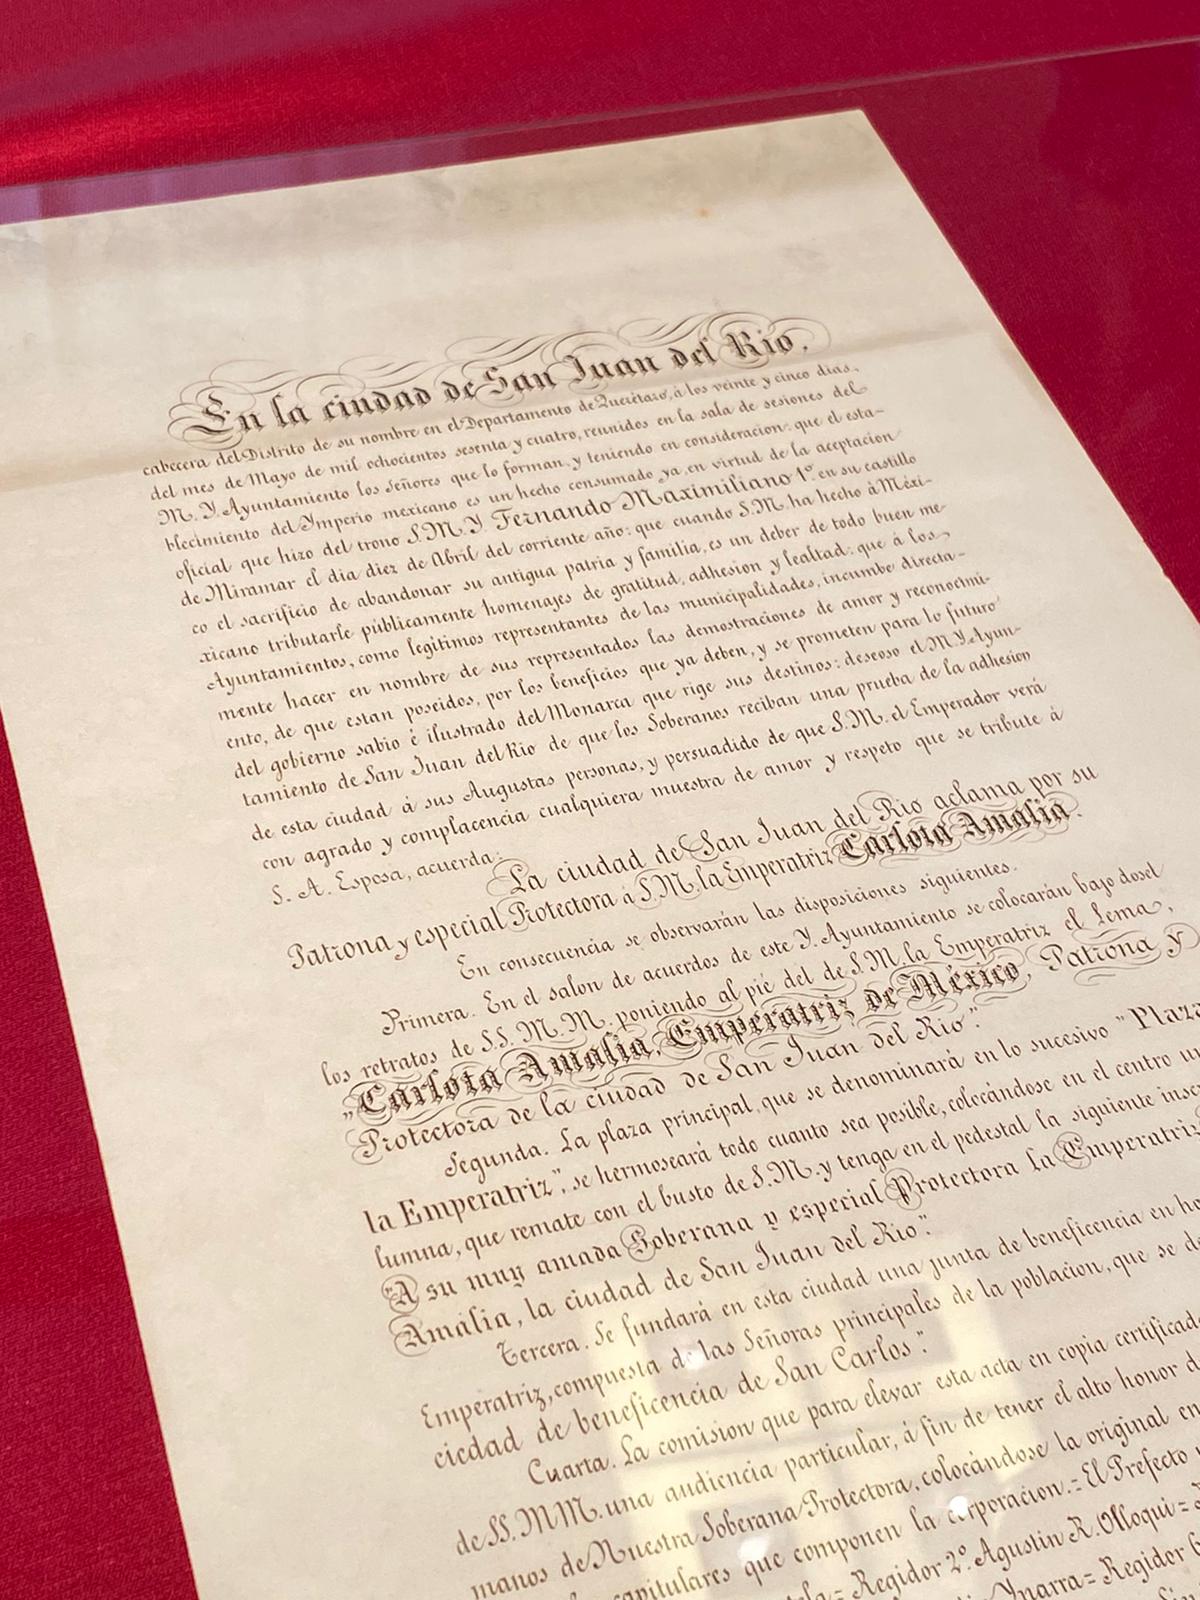 En la ciudad de San Juan del Rio,
cabecera del Distrito de su nombre en el Departamento de Querétaro, á los veinte y cinco dias
del mes de Mayo de mil ochocientos sesenta y cuatro, reunidos en la sala de sesiones del
M. Y. Ayuntamiento los Señores que lo forman, y teniendo en consideracion: que el esta-
blecimiento del Ymperio mexicano es un hecho consumado ya, en virtud de la aceptacion
oficial que hizo del trono S. M. Y. Fernando Maximiliano 1º. en su castillo
de Miramar el dia diez de Abril del corriente año: que cuando S. M. ha hecho á Méxi-
co el sacrificio de abandonar su antigua patria y familia, es un deber de todo buen me-
xicano tributarle públicamente homenajes de gratitud, adhesion y lealtad: que á los
Ayuntamientos, como legítimos representantes de las municipalidades, incumbe directa-
mente hacer en nombre de sus representados las demostraciones de amor y reconocimi-
ento, de que estan poseidos, por los beneficios que ya deben, y se prometen para lo futuro
del gobierno sabio é ilustrado del Monarca que rige sus destinos: deseoso el M. Y. Ayun-
tamiento de San Juan del Rio de que los Soberanos reciban una prueba de la adhesion
de esta ciudad á sus Augustas personas, y persuadido de que S. M. el Emperador verá
con agrado y complacencia cualquiera muestra de amor y respeto que se tribute á
S. A. Esposa, acuerda:
La ciudad de San Juan del Rio aclama por su
Patrona y especial Protectora á S. M. la Emperatriz Carlota Amalia.
En consecuencia se observarán las disposiciones siguientes.
Primera. En el salon de acuerdos de este Y. Ayuntamiento se colocarán bajo dosel
los retratos de S.S. M. M. poniendo al pié del de S. M. la Emperatriz el lema,
"Carlota Amalia, Emperatriz de México, Patrona y
Protectora de la ciudad de San Juan del Rio".
Segunda. La plaza principal, que se denominará en lo sucesivo "Plaza
la Emperatriz", se hermoseará todo cuanto sea posible, colocándose en el centro
lumna, que remate con el busto de S. M. y tenga en el pedestal la siguiente
"A su muy amada Soberana y especial Protectora la Emperatriz
Amalia, la ciudad de San Juan del Rio".
Tercera. Se fundará en esta ciudad una junta de beneficencia en
Emperatriz, compuesta de las Señoras principales de la poblacion, que se
ciedad de beneficencia de San Carlos".
Cuarta. La comision que para elevar esta acta en copia
de SS. MM. una audiencia particular, á fin de tener el alto honor
manos de Nuestra Soberana Protectora, colocándose la original en
capitulares que componen la corporacion. = El Prefecto
= Regidor 2º. Agustin R. Olloqui =
Ynarra = Regidor